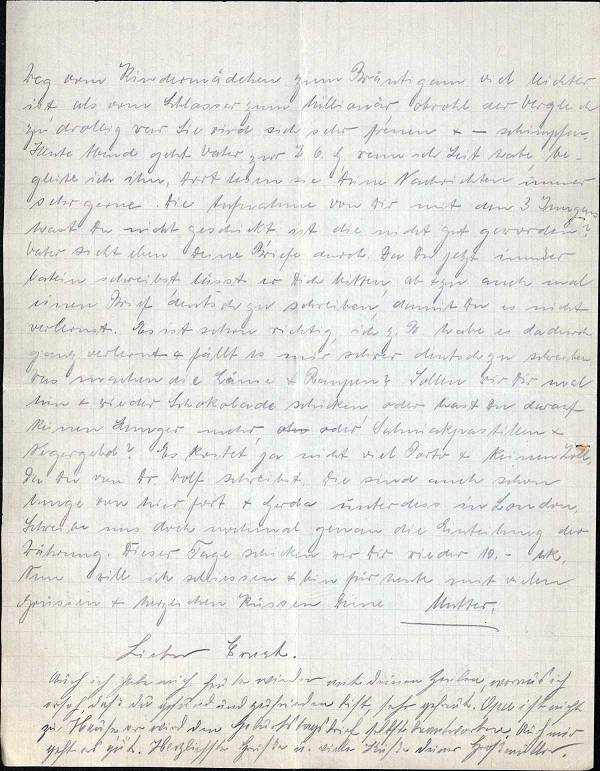 Weg vom Kindermädchen zum Bräutigam viel leichter
ist als vom Schlosser zum Millionär obwohl der Vergleich
zu drollig war. Sie wird sich sehr freuen + – schimpfen.
Heute Abend geht Vater zur wenn ich Lust habe, be-
gleite ich ihn, dort lesen sie Deine Nachrichten immer
sehr gerne. Die Aufnahme von Dir mit den 3 Jungens
hast Du nicht geschickt ist die nicht gut geworden?
Vater sieht eben Deine Briefe durch. Da Du jetzt immer
latein schreibst lässt er Dich bitten, ab + zu auch mal
einen Brief deutsch zu schreiben, damit Du es nicht
verlernst. Es ist schon richtig, ich z. B. habe es dadurch
ganz verlernt + fällt es mir schwer deutsch zu schreiben
Was machen die + Sollen wir Dir mal
hin + wieder Schokolade schicken oder hast Du darauf
keinen Hunger mehr, oder Salmiakpastillen +
Negergeld? Es kostet ja nicht viel Porto + keinen Zoll.
Da Du von Dr. Wolf schreibst, die sind auch schon
lange von hier fort + Gerda unterdess in London.
Schreibe uns doch nochmal genau die Einteilung der
Währung. Dieser Tage schicken wir Dir wieder 10.- Mk.
Nun will ich schliessen + bin für heute mit vielen
Grüssen + herzlichen Küssen Deine Mutter.
Lieber Ernst.
Auch ich habe mich heute wieder mit deinen Zeilen, woraus ich
ersah daß du gesund und zufrieden bist, sehr gefreut. Opa ist nicht
zu Hause er wird den Geburtstagsbrief selbst beantworten. Auch mir
geht es gut. Herzlichste Grüße u. viele Küße deine Großmutter.